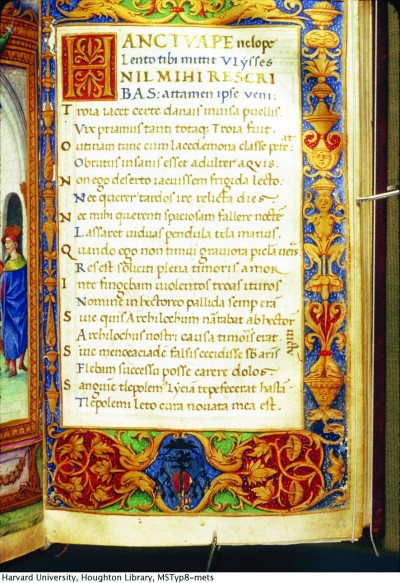 HANC TVA PEnelope
Lento tibi mittit VLYSSES
NIL MIHI RESCRI
BAS: attamen ipse veni:
Troia iacet certe danais inuisa puellis.
Vix priamus tanti totaq; Troia fuit.
O utinam tunc cum lacedemona classe petebat
Obrutus insanis esset adulter aquis.
Non ego deserto iacuissem frigida lecto:
Nec querer tardos ire relicta dies.
Nec mihi querenti spaciosam fallere noctē
Lassaret uiduas pendula tela manus.
Quando ego non timui grauiora picla ueris
Res est soliciti plena timoris amor
In te fingebam uiolentos troas ituros
Nomine in hectoreo pallida semp erā
Siue quis Archilochum narabat ab hectore
Archilochus nostri causa timoris erat
Siue menoeciadē falsis cecidisse sb armis
Flebam successu posse carere dolos.
Sanguīe tlepolem Lyciā tepefecerat hastā
Tlepolemi leto cura nouata mea est.
Harvard University, Houghton Library, MSTyp8-mets